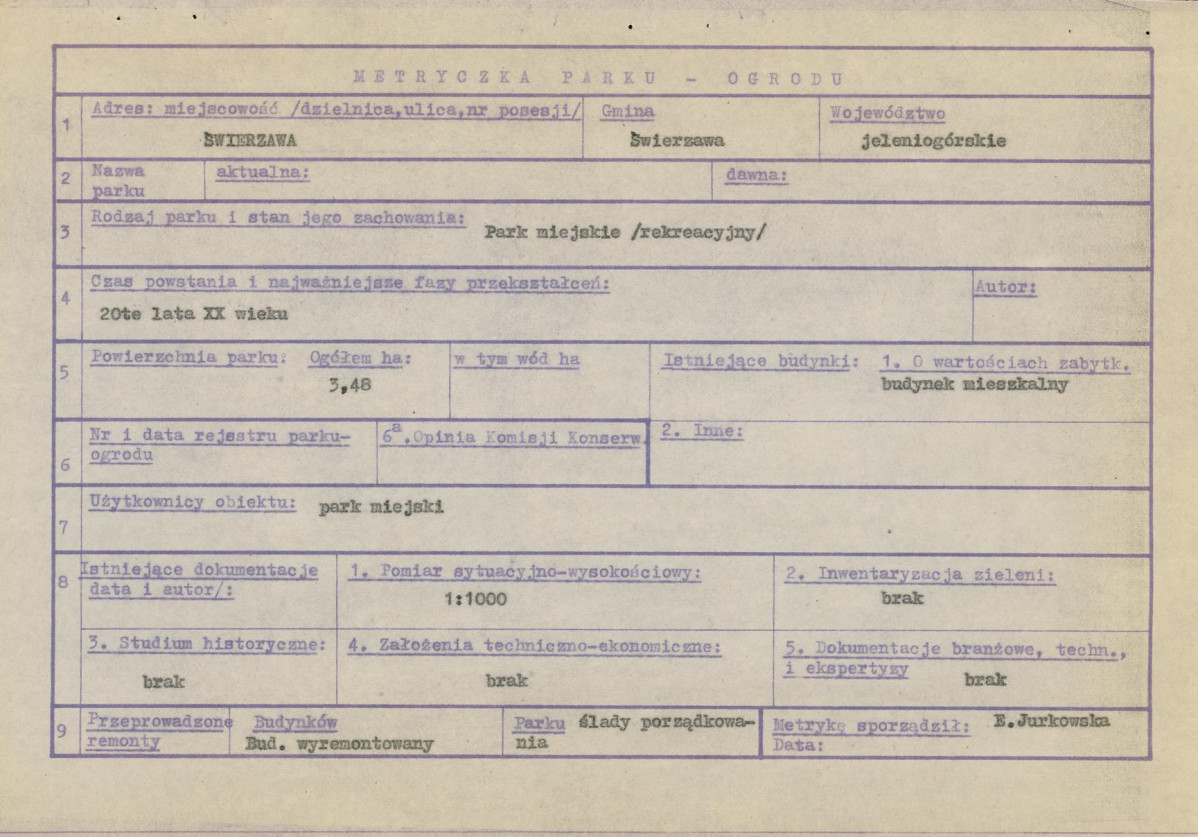 METRYCZKA PARKU - OGRODU
1
Adres: miejscowość /dzielnica,ulica,nr posesji/
ŚWIERZAWA
Gmina
Świerzawa
Województwo
jeleniogórskie
2
Nazwa
parku
aktualna:
dawna:
3
Rodzaj parku i stan jego zachowania:
Park miejskie /rekreacyjny/
4
Czas powstania i najważniejsze fazy przekształceń:
20te lata XX wieku
Autor:
5
Powierzchnia parku: Ogółem ha:
3,48
w tym wód ha
Istniejące budynki: 1. O wartościach zabytk.
budynek mieszkalny
6
Nr i data rejestru parku-
ogrodu
6a.Opinia Komisji Konserw.
2. Inne:
7
Użytkownicy obiektu: park miejski
8
Istniejące dokumentacje
data i autor/:
1. Pomiar sytuacyjno-wysokościowy:
1:1000
2. Inwentaryzacja zieleni:
brak
3. Studium historyczne:
brak
4. Założenia techniczno-ekonomiczne:
brak
5. Dokumentacje branżowe, techn.,
i ekspertyzy brak
9
Przeprowadzone
remonty
Budynków
Bud. wyremontowany
Parku ślady porządkowa-
nia
Metrykę sporządził: E.Jurkowska
Data: